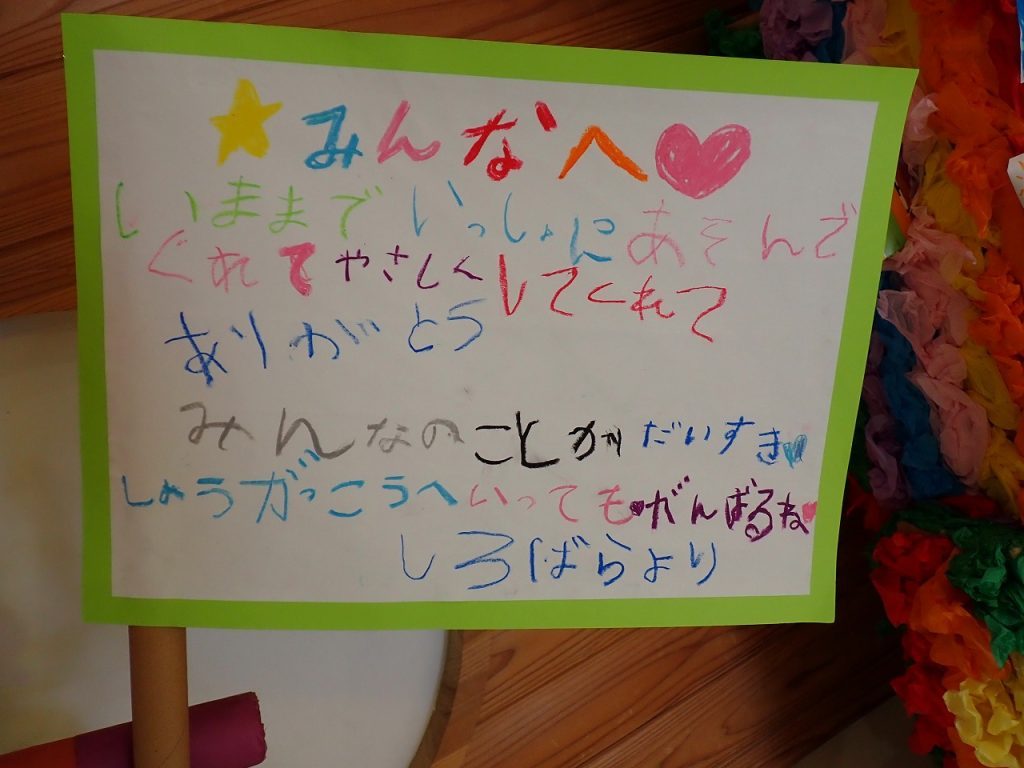 みんなへ
いままでいっしょにあそんで
くれてやさしくしてくれて
ありがとう
みんなのことがだいすき
しょうがっこうへいってもがんばるね
しろばらより